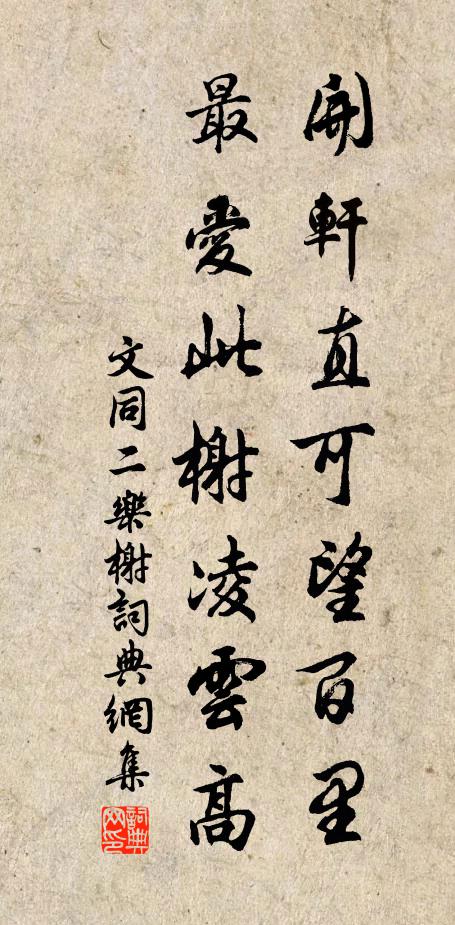 開軒直可望百里
最愛此榭凌雲高
文同二樂榭詞典網集
詞典網印